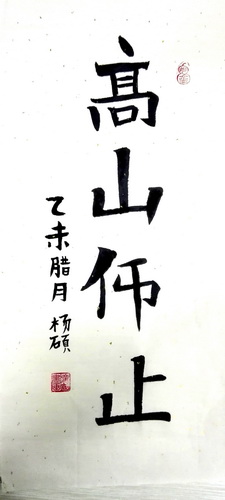 高山仰止
乙未腊月 杨硕